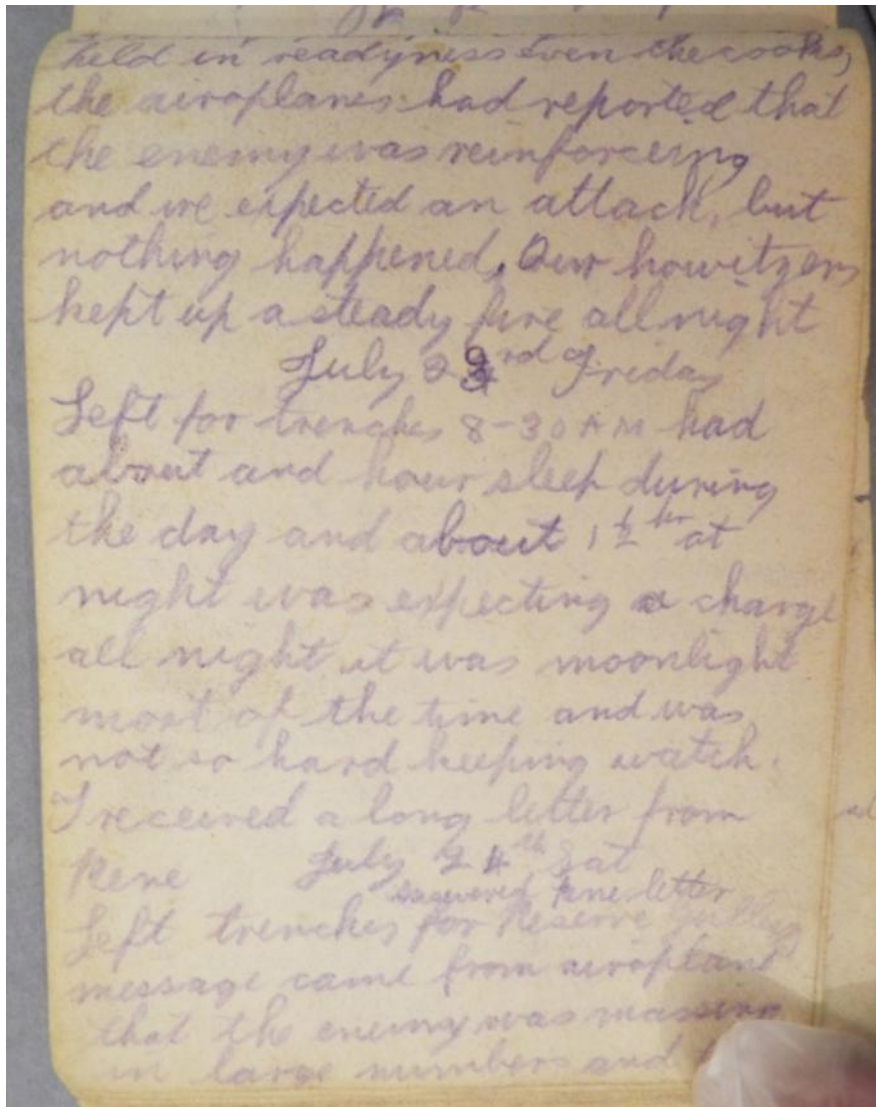 held in readyness Even the cooks,
the airoplanes had reported that
the enemy was reinforceing
and we expected an attack, but
nothing happened. Our howitzers
kept up a steady fire all night
July 23rd of Friday
Left for trenches 8-30 AM had
about and hour sleep during
the day and about 1 1/2 hr at
night was expecting a charge
all night it was moonlight
most of the time and was
not so hard keeping watch.
I received a long letter from
Rene July 24th Sat
answered Rene letter
Left trenches for Reserve Gulley
message came from airoplane
that the enemy was massing
in large numbers and